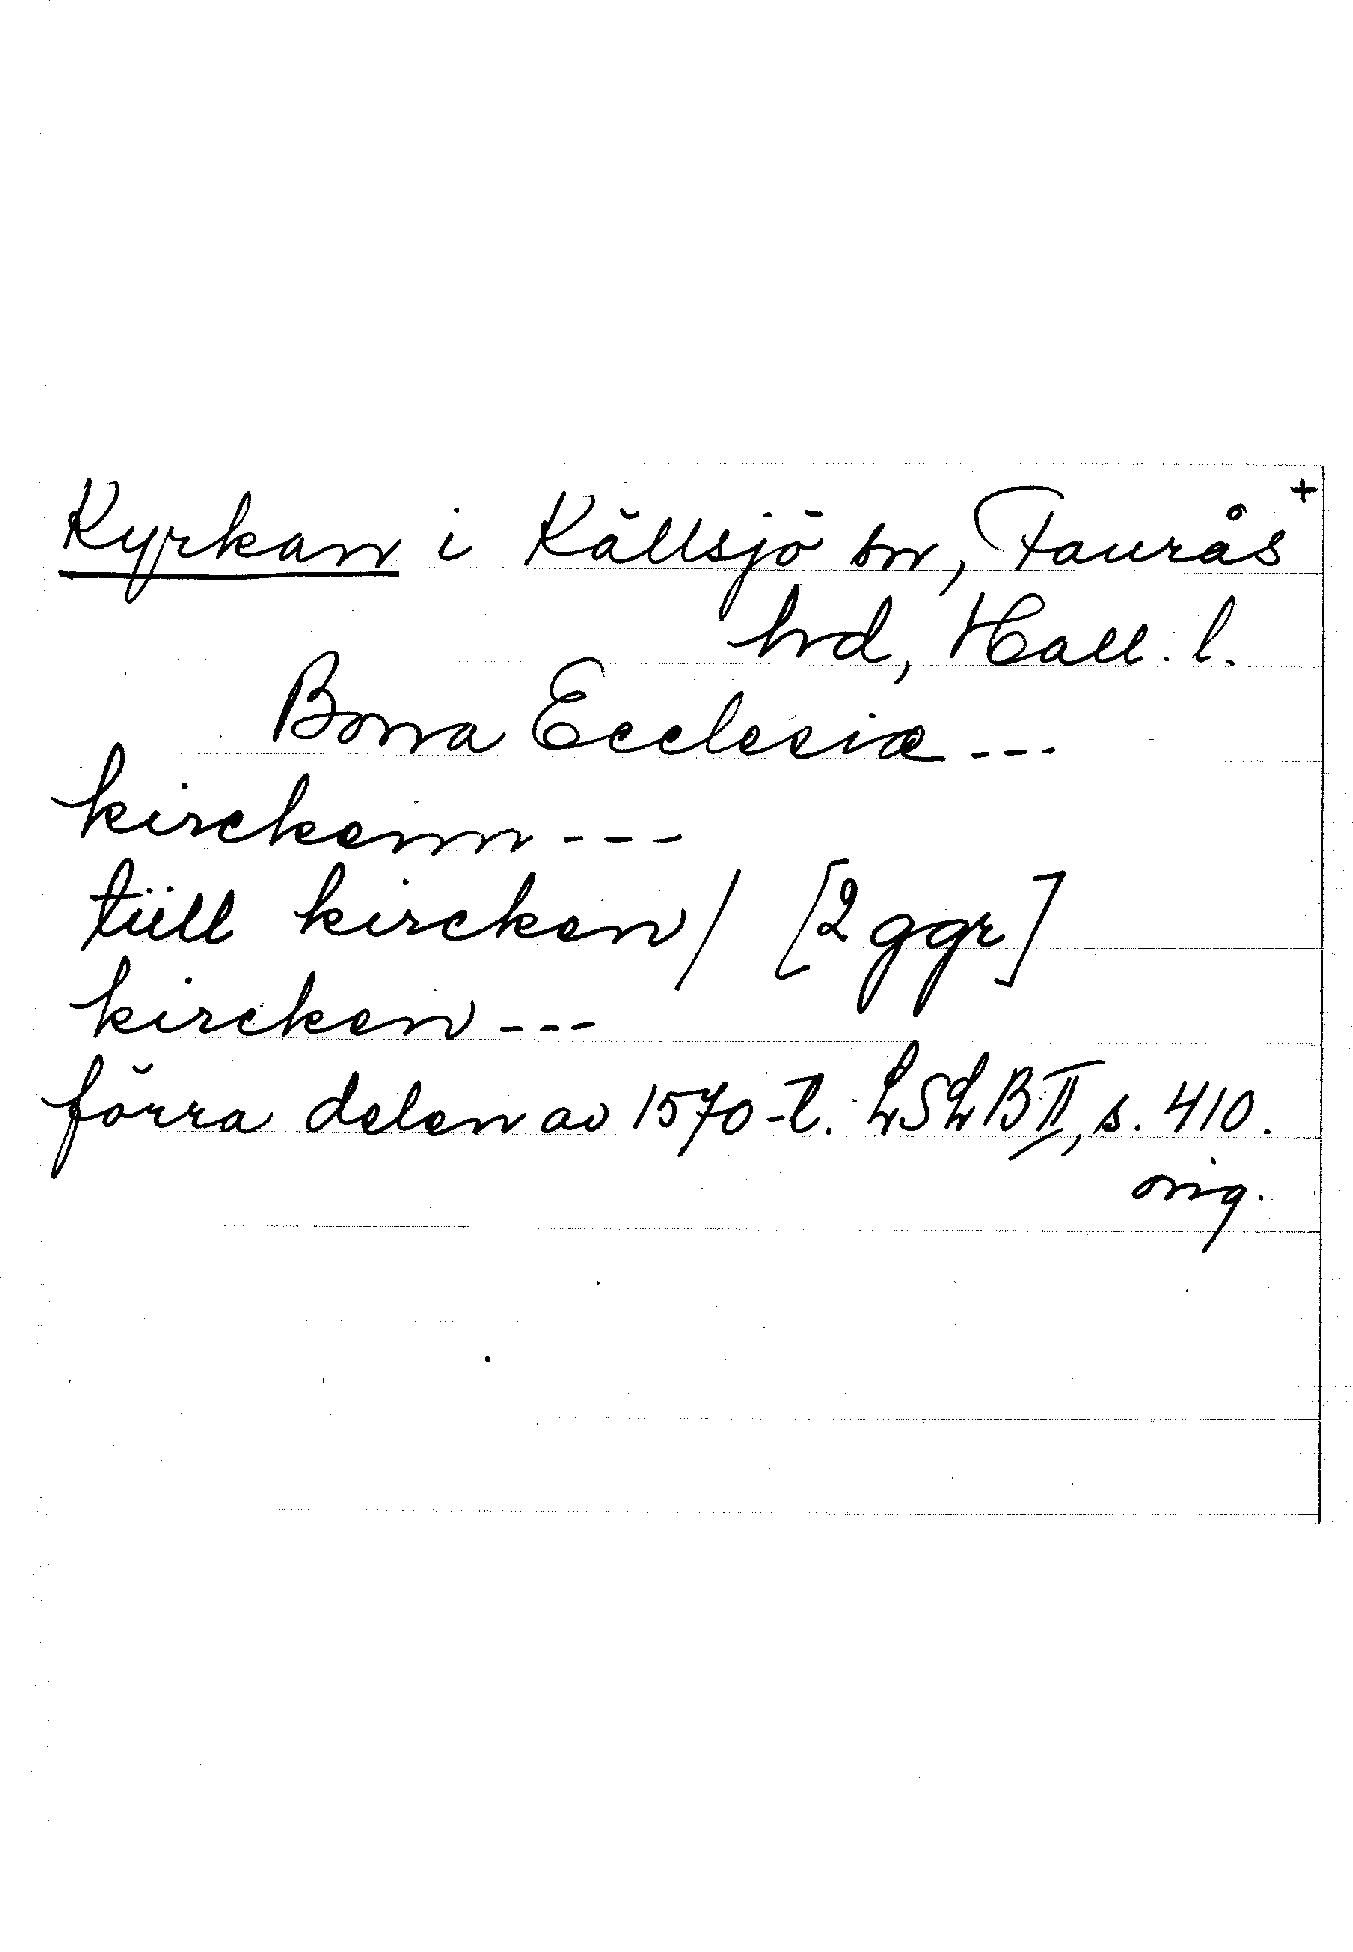 Kyrkan i Källsjö sn, Faurås +
hrd, Hall. l.
Bona Ecclesiæ ---
kirckenn ---
tüll kircken / [2 ggr]
kircken ---
förra delen av 1570-t. LSLB II, s. 410.
orig.